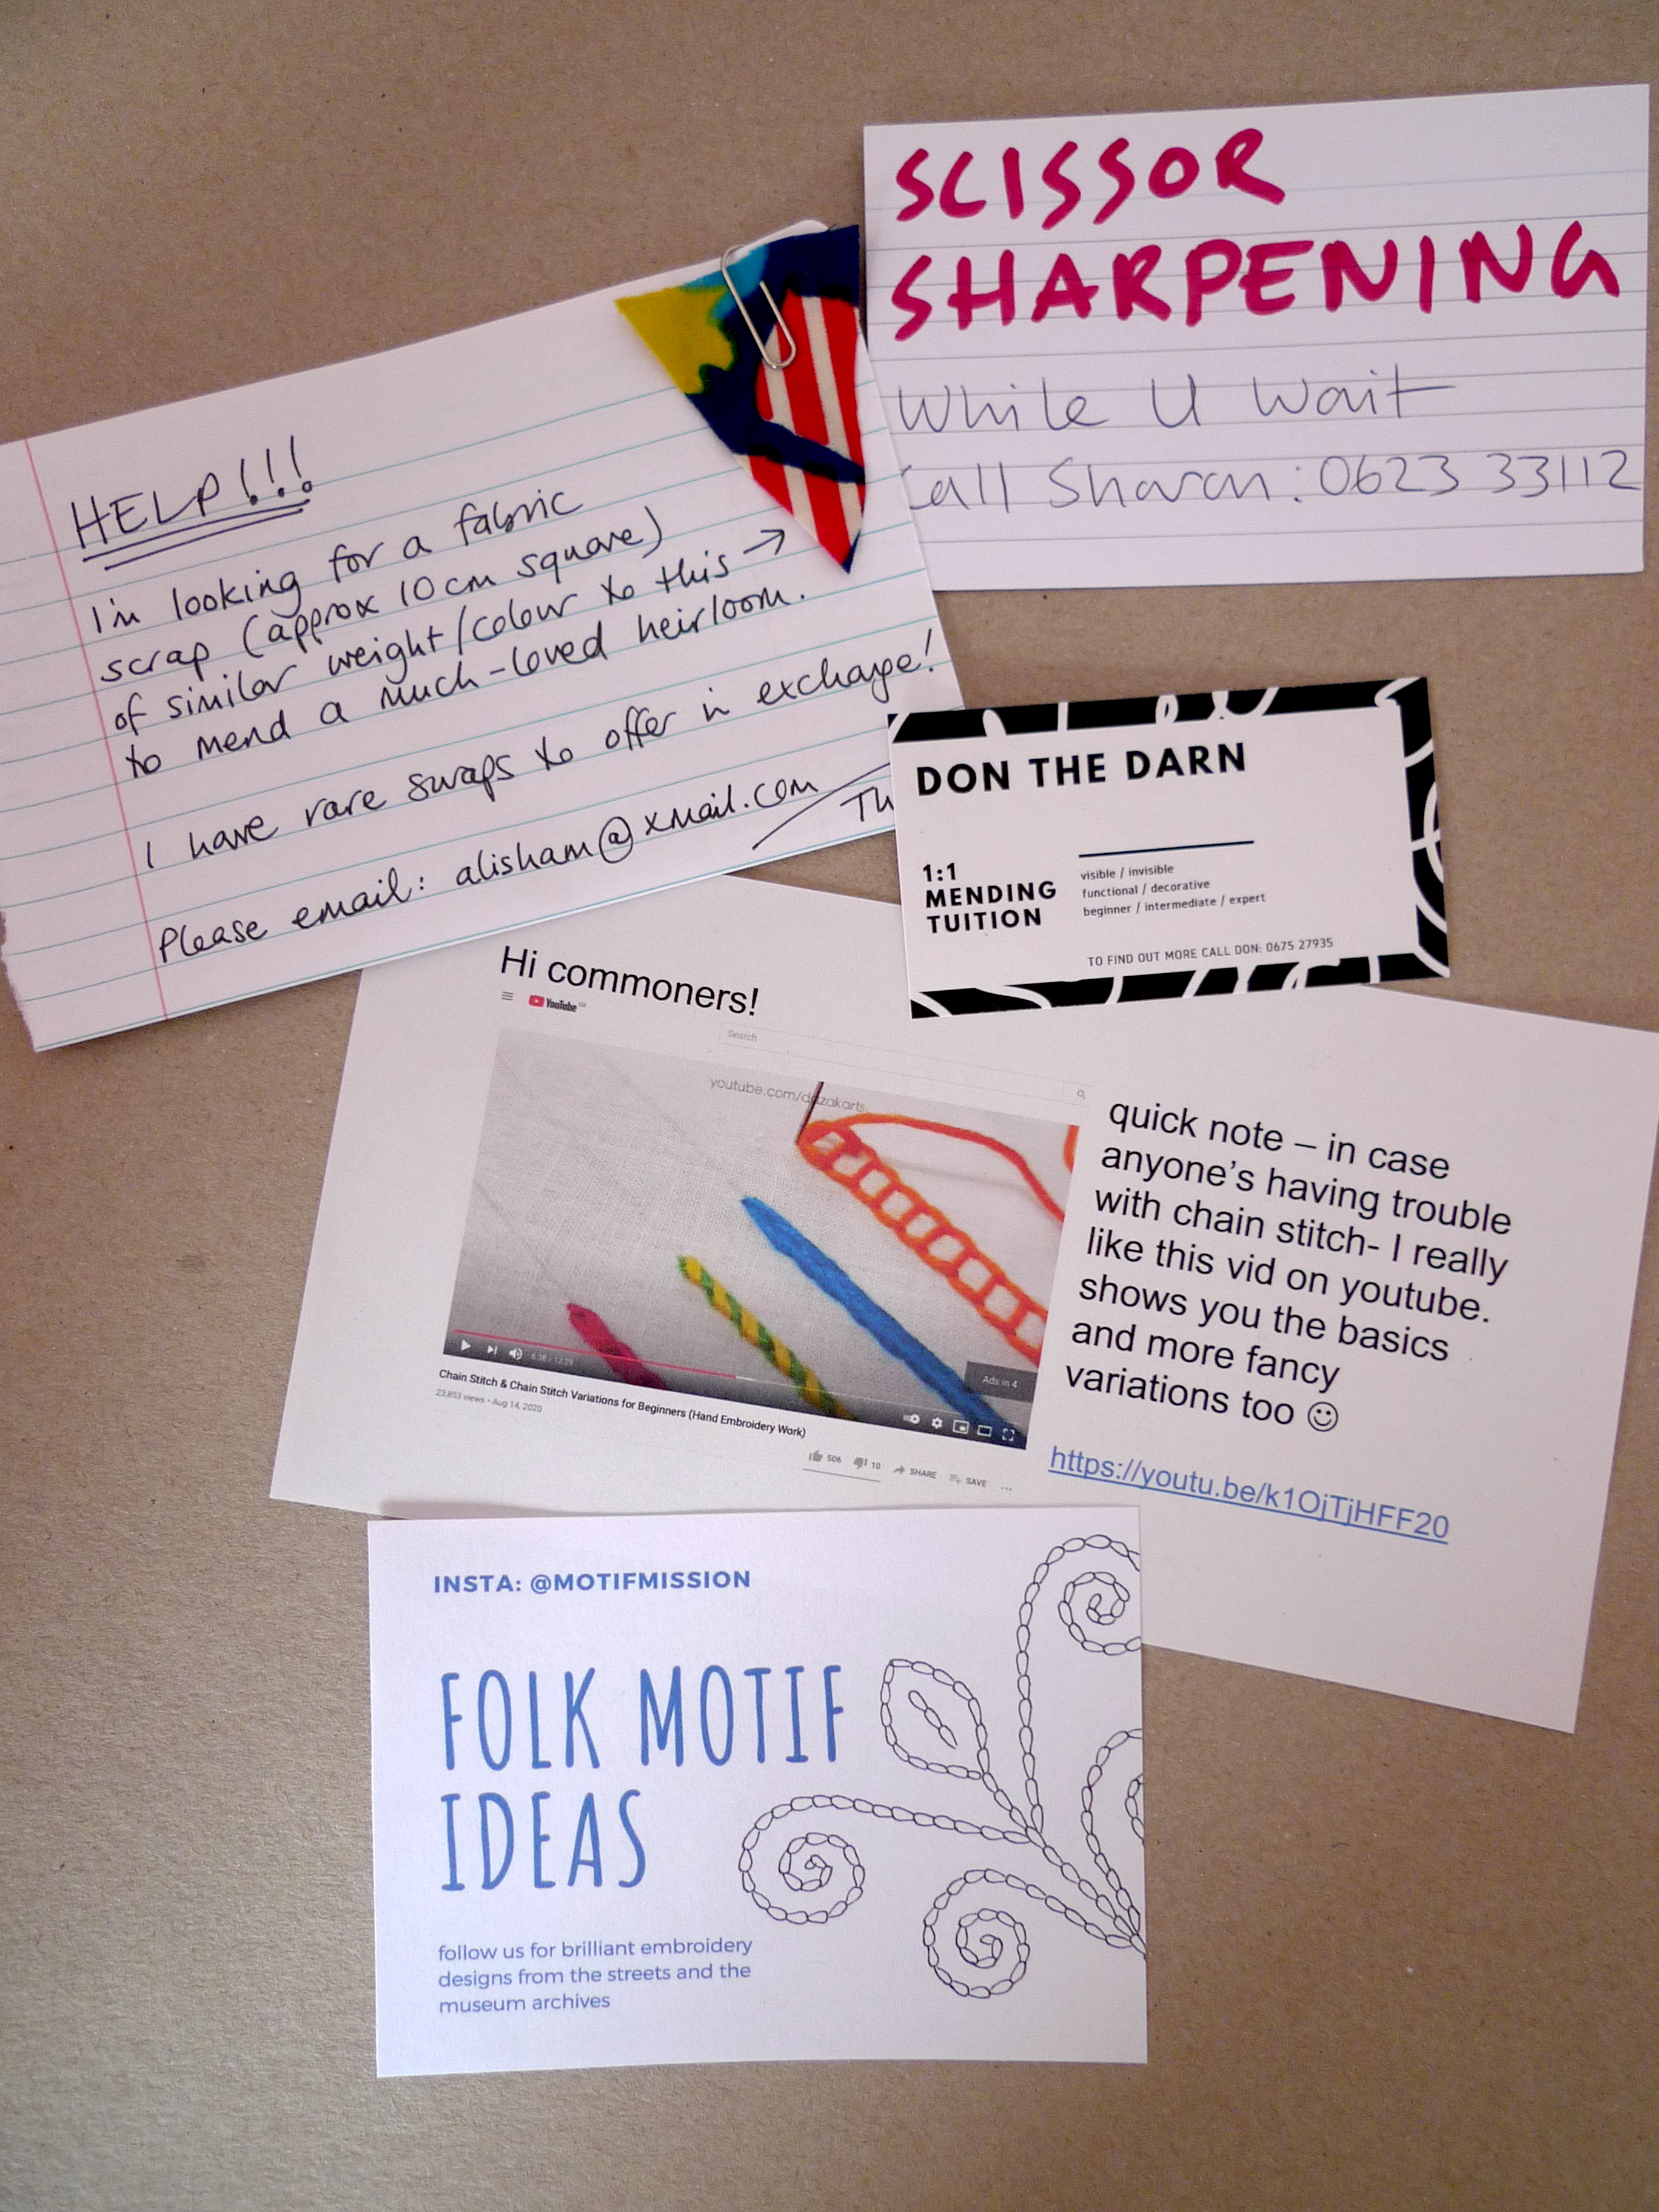 SCISSOR
SHARPENING
While U Wait
Call Sharon: 0623 33112
HELP!!!
I'm looking for a fabric
scrap (approx 10cm square)
of similar weight/colour to this →
to mend a much-loved heirloom.
I have rare swaps to offer in exchange!
Please email: alisham@xmail.com
Th
DON THE DARN
1:1
MENDING
TUITION
visible / invisible
functional / decorative
beginner / intermediate / expert
TO FIND OUT MORE CALL DON: 0675 27935
Hi commoners!
YouTube
Search
youtube.com/
6:38 / 12:29
Ads in 4
Chain Stitch & Chain Stitch Variations for Beginners (Hand Embroidery Work)
23,853 views • Aug 14, 2020
506 10 SHARE SAVE ...
quick note – in case
anyone's having trouble
with chain stitch- I really
like this vid on youtube.
shows you the basics
and more fancy
variations too ☺
https://youtu.be/k1OjTjHFF20
INSTA: @MOTIFMISSION
FOLK MOTIF
IDEAS
follow us for brilliant embroidery
designs from the streets and the
museum archives